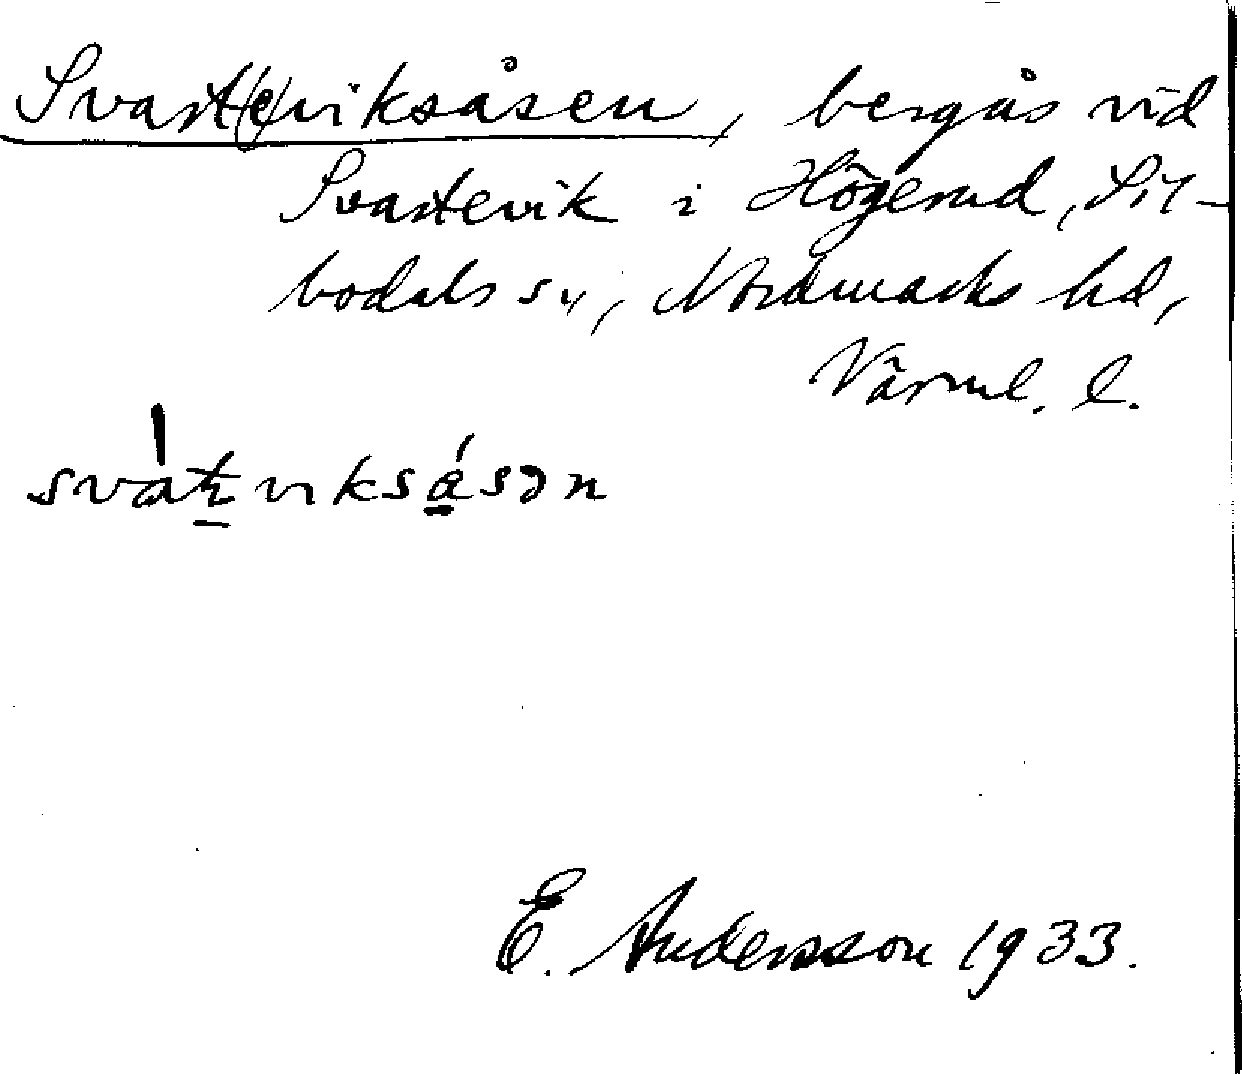 Svart(e)viksåsen, bergås vid
Svartevik i Högerud, Sil-
bodals sn, Nordmarks hd,
Värml. l.
E. Andersson 1933.